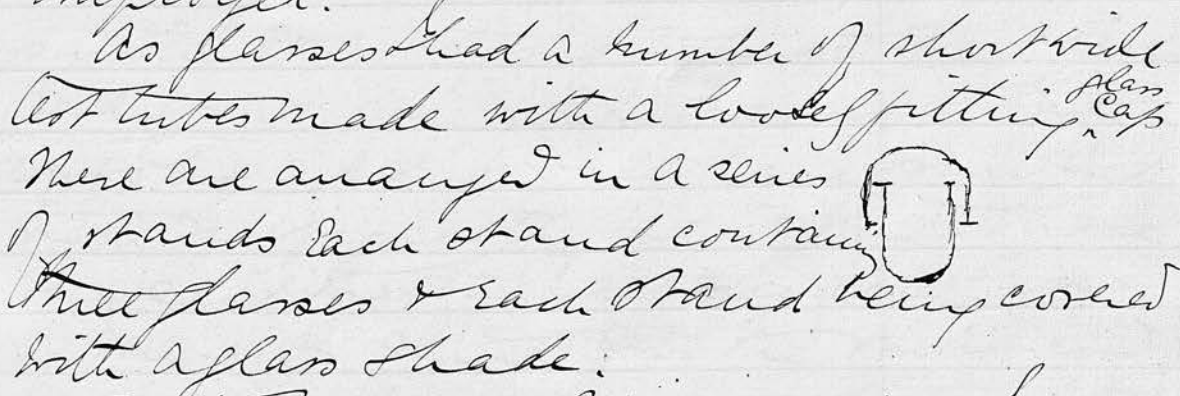 employer.
As glasses I had a number of short wide
test tubes made with a loosely fitting ^glass cap
These are arranged in a series
of stands Each stand containing
three glasses & each stand being covered
with a glass shade.